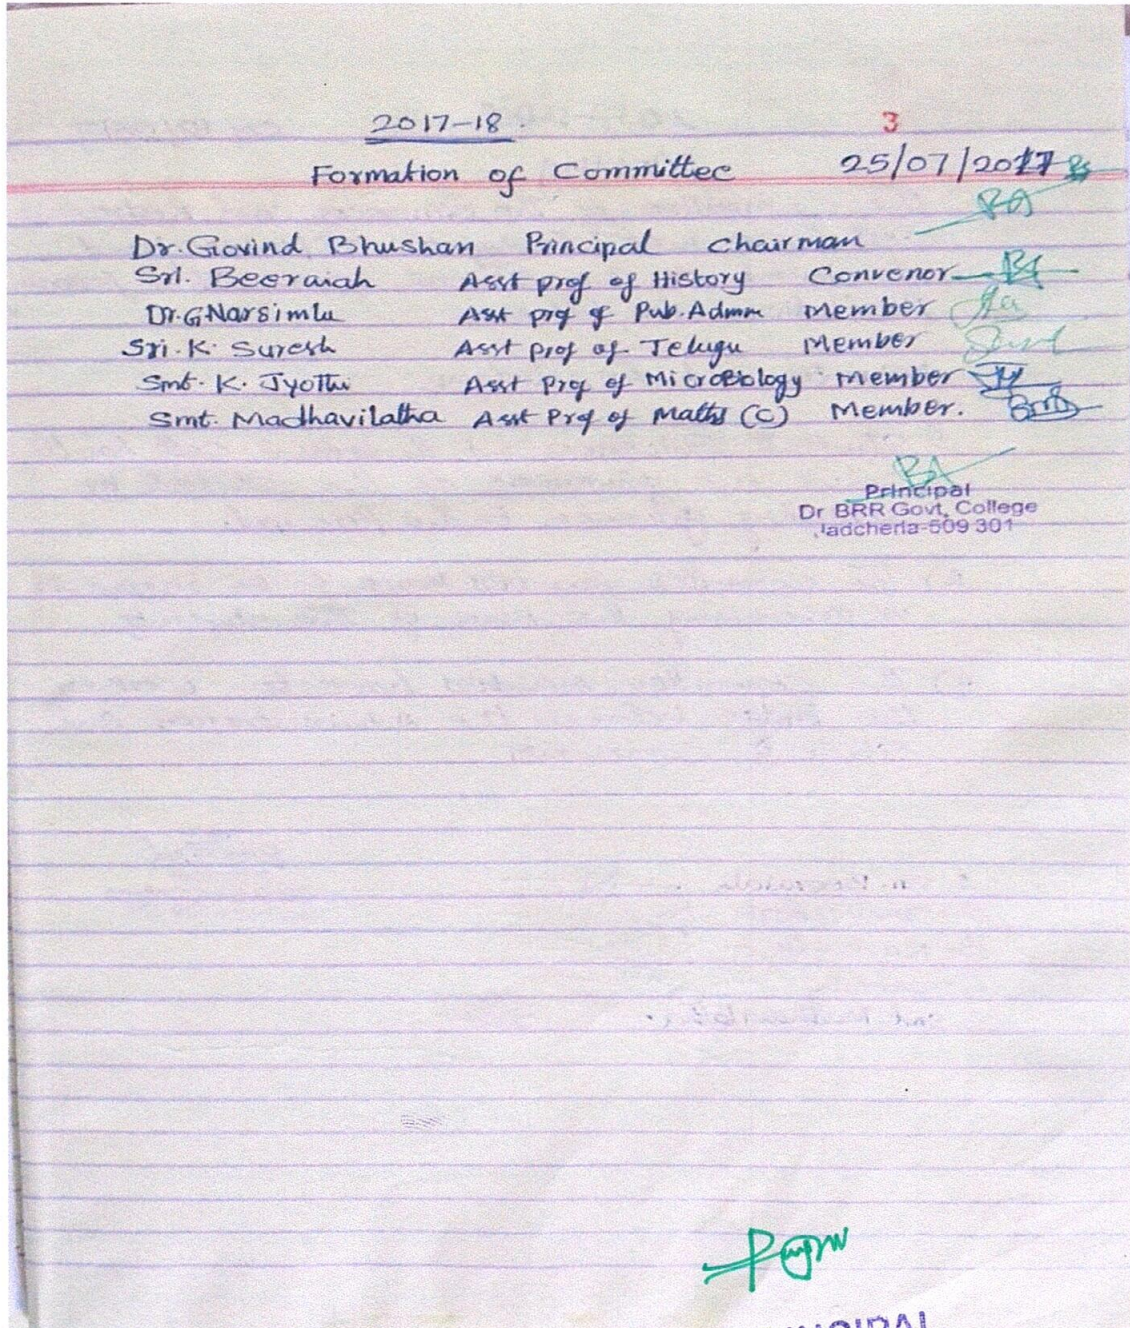 2017-18.
3
Formation of Committee 25/07/2017
Dr. Govind Bhushan Principal Chairman
Sri. Beeraiah Asst prof of History Convenor
Dr. G Narsimlu Asst prof of Pub. Admn Member
Sri. K. Suresh Asst prof of Telugu Member
Smt. K. Jyothi Asst Prof of MicroBiology Member
Smt. Madhavilatha Asst Prof of Maths (C) Member.
Principal
Dr BRR Govt, College
Jadcherla-509 301